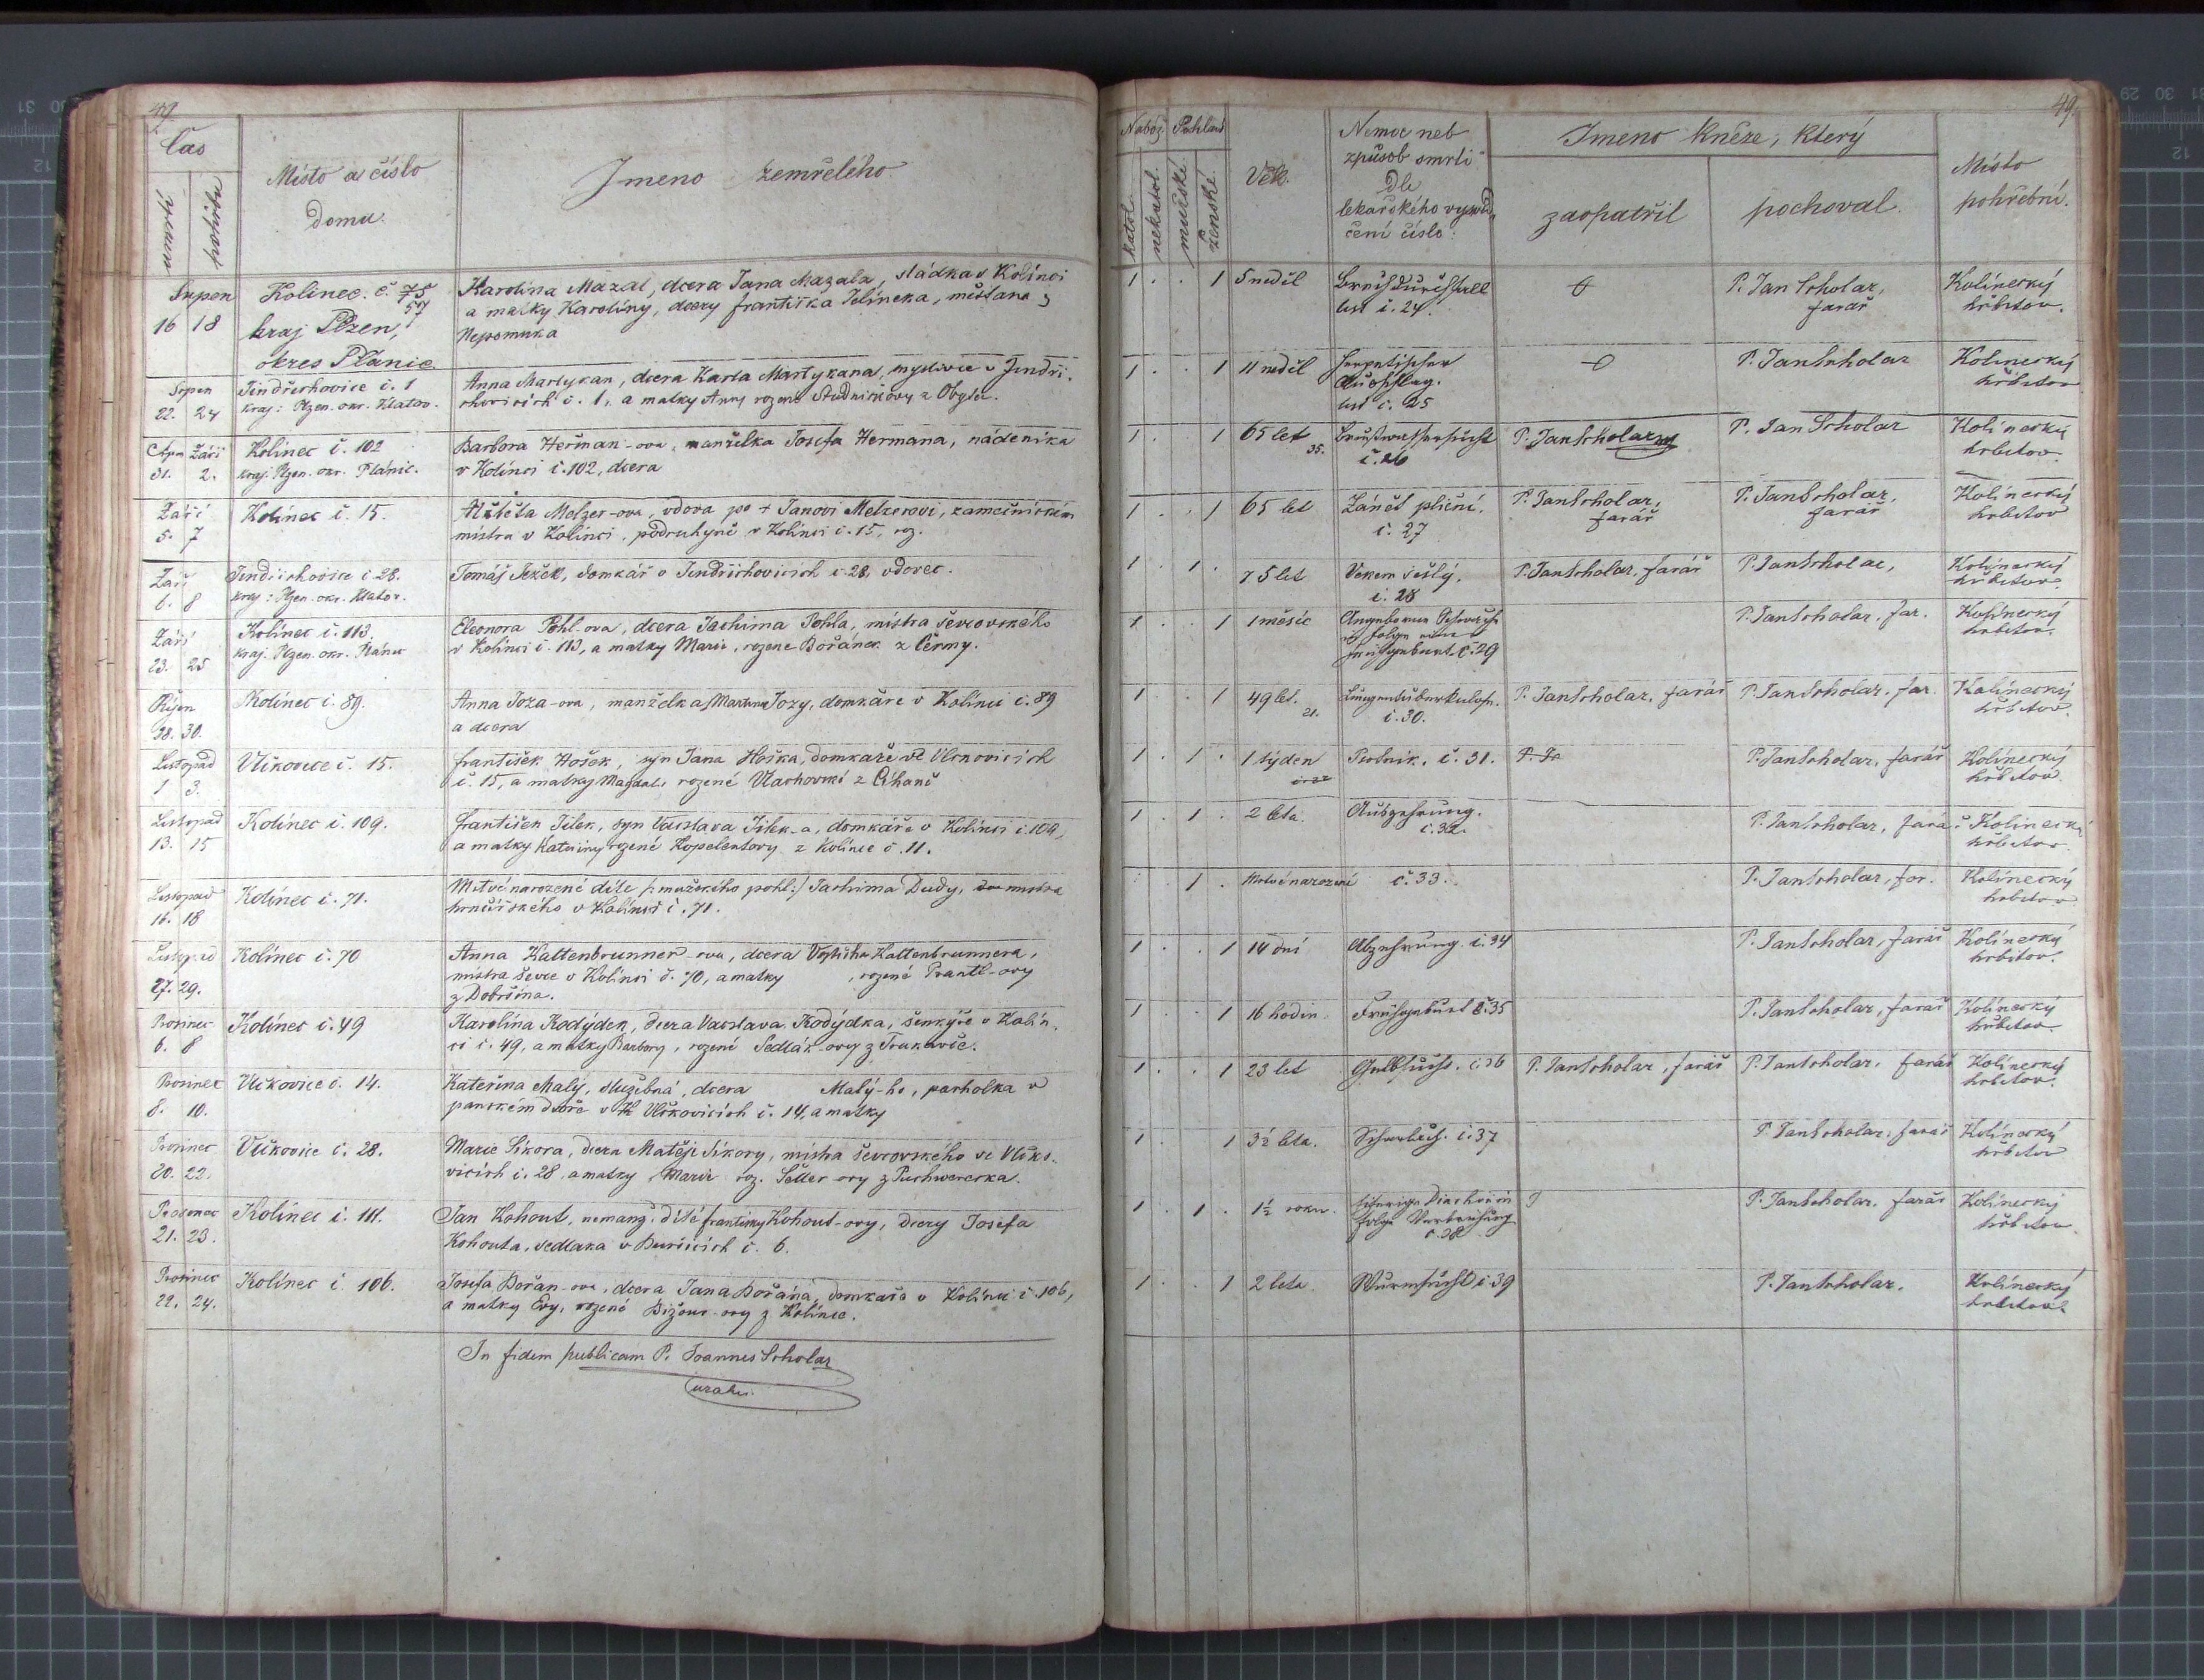 49.
Čas
úmrtí
pohřbu
Místo a číslo
domu.
Jmeno zemřelého
Srpen
16 18
Kolinec. č. 75
57
kraj Plzen,
okres Planic.
Karolina Mazal, dcera Jana Mazala, sládka v Kolínci
a matky Karolíny, dcery františka Jelíneka, měštana z
Nepomuka
Srpen
22. 24
Jindřichovice č. 1
kraj: Plzen. okr. Klatov.
Anna Martykan, dcera Karla Martykana, myslivce v Jindři-
chovicích č. 1, a matky Anny rozené Studničkovy z Obytec.
Srpn Září
31. 2.
Kolinec č. 102
kraj. Plzen. okr. Planic.
Barbora Heřman-ova, manželka Josefa Hermana, nádeníka
v Kolínci č. 102, dcera
Září
5. 7
Kolinec č. 15.
Alžběta Melzer-ova, vdova po + Janovi Melzerovi, zamečnickém
mistru v Kolinci, podruhyně v Kolinci č. 15, roz.
Září
6. 8
Jindřichovice č 28.
kraj: Plzen. okr. Klatov.
Tomáš Ježek, domkář v Jindřichovicích č. 28, vdovec.
Září
23. 25
Kolinec č. 113.
kraj. Plzen. okr. Plánic
Eleonora Pohl-ova, dcera Jachima Pohla, mistra ševcovského
v Kolínci č. 113, a matky Marie, rozene Bořánek z Čermy.
Říjen
28. 30.
Kolinec č. 89.
Anna Joza-ova, manželka Martina Jozy, domkáře v Kolínci č. 89
a dcera
Listopad
1 3.
Vlčkovice č. 15.
františek Hošek, syn Jana Hoška, domkáře ve Vlčkovicích
č. 15, a matky Magdal. rozené Vlachovské z Číhaně
Listopad
13. 15
Kolinec č. 109.
františek Jílek, syn Vácslava Jílek-a, domkáře v Kolínci č. 109,
a matky Kateriny rozené Kopelentovy z Kolince č. 11.
Listopad
16. 18
Kolinec č. 71.
Mrtvě narozené díte /: mužského pohl:/ Jachima Dudy, mistra
hrnčířského v Kolínci č. 71.
Listopad
27. 29.
Kolinec č. 70
Anna Kattenbrunner-ova, dcera Vojtěcha Kattenbrunnera,
mistra ševce v Kolínci č. 70, a matky , rozené Prantl-ovy
z Dobršína.
Prosinec
6. 8
Kolinec č. 49
Karolina Kodýdek, dcera Vácslava Kodýdka, šenkýře v Kolín-
ci č. 49, a matky Barbory, rozené Sedlák-ovy z
Prosinec
8. 10.
Vlčkovice č. 14.
Kateřina Malý, služebná, dcera Malý-ho, pacholka v
panském dvoře v Vlčkovicích č. 14, a matky
Prosinec
20. 22.
Vlčkovice č. 28.
Marie Síkora, dcera Matěje Síkory, mistra ševcovského ve Vlčko-
vicích č. 28, a matky Marie roz. Šeller-ovy z
Prosinec
21. 23.
Kolinec č. 111.
Jan Kohout, nemanž. dítě františky Kohout-ovy, dcery Josefa
Kohouta, sedlaka v Buršicích č. 6.
Prosinec
22. 24.
Kolinec č 106.
Josefa Bořan-ova, dcera Jana Bořana, domkaře v Kolínci č. 106,
a matky Evy, rozené Bizour-ovy z Kolince.
In fidem publicam P. Joannes Scholar
curatus.
49.
Nabož.
Pohlaví
katol.
nekatol.
mužské.
ženské.
Věk.
Nemoc neb
způsob smrti
dle
lekařského vysvěd-
čení číslo:
Jmeno kněze, který
zaopatřil
pochoval.
Místo
pohřební.
1 . . 1 5 neděl
list č. 24.
P. Jan Scholar,
farař
Kolínecký
hřbitov.
1 . . 1 11 neděl
Ausschlag.
list č. 25
P. Jan Scholar
Kolinecký
hřbitov
1 . 1 65 let
35.
Brustwassersucht
č. 26
P. Jan Scholar
P. Jan Scholar
Kolinecký
hrbitov.
1 . . 1 65 let
Zánět pliční.
č. 27
P. Jan Scholar,
farář
P. Jan Scholar,
farář
Kolínecký
hrbitov
1 . 1 . 75 let
Věkem sešlý.
č. 28
P. Jan Scholar, farář
P. Jan Scholar,
Kolínecký
hřbitov.
1 . . 1 1 měsíc
Angeborene Schwäche
in folge einer
Frühgeburt č. 29
P. Jan Scholar. far.
Kolínecký
hrbitov.
1 . . 1 49 let.
21.
Lungentuberkulose.
č. 30.
P. Jan Scholar, farář
P. Jan Scholar. far.
Kolínecký
hrbitov.
1 . 1 . 1 týden
Psotník. č. 31.
P. Ja
P. Jan Scholar, farář
Kolínecký
hřbitov.
1 . 1 . 2 léta.
Auszehrung.
č. 32.
P. Jan Scholar, farář
Kolinecký
hrbitov
1 . Mrtvě narozené č. 33.
P. Jan Scholar, far.
Kolínecký
hrbitov
1 . . 1 14 dní
Abzehrung. č. 34
P. Jan Scholar, farář
Kolínecký
hrbitov.
1 . . 1 16 hodin.
Frühgeburt č. 35
P. Jan Scholar, farář
Kolínecký
hrbitov
1 . . 1 23 let
Gelbsucht. č. 36
P. Jan Scholar, farář
P. Jan Scholar. farář
Kolínecký
hrbitov.
1 . 1 3½ léta.
Scharlach. č. 37
P. Jan Scholar, farář
Kolínecký
hrbitov
1 . 1 . 1½ roku.
č. 38
P. Jan Scholar. farář
Kolínecký
hřbitov
1 . . 1 2 léta
č. 39
P. Jan Scholar.
Kolínecký
hrbitov.